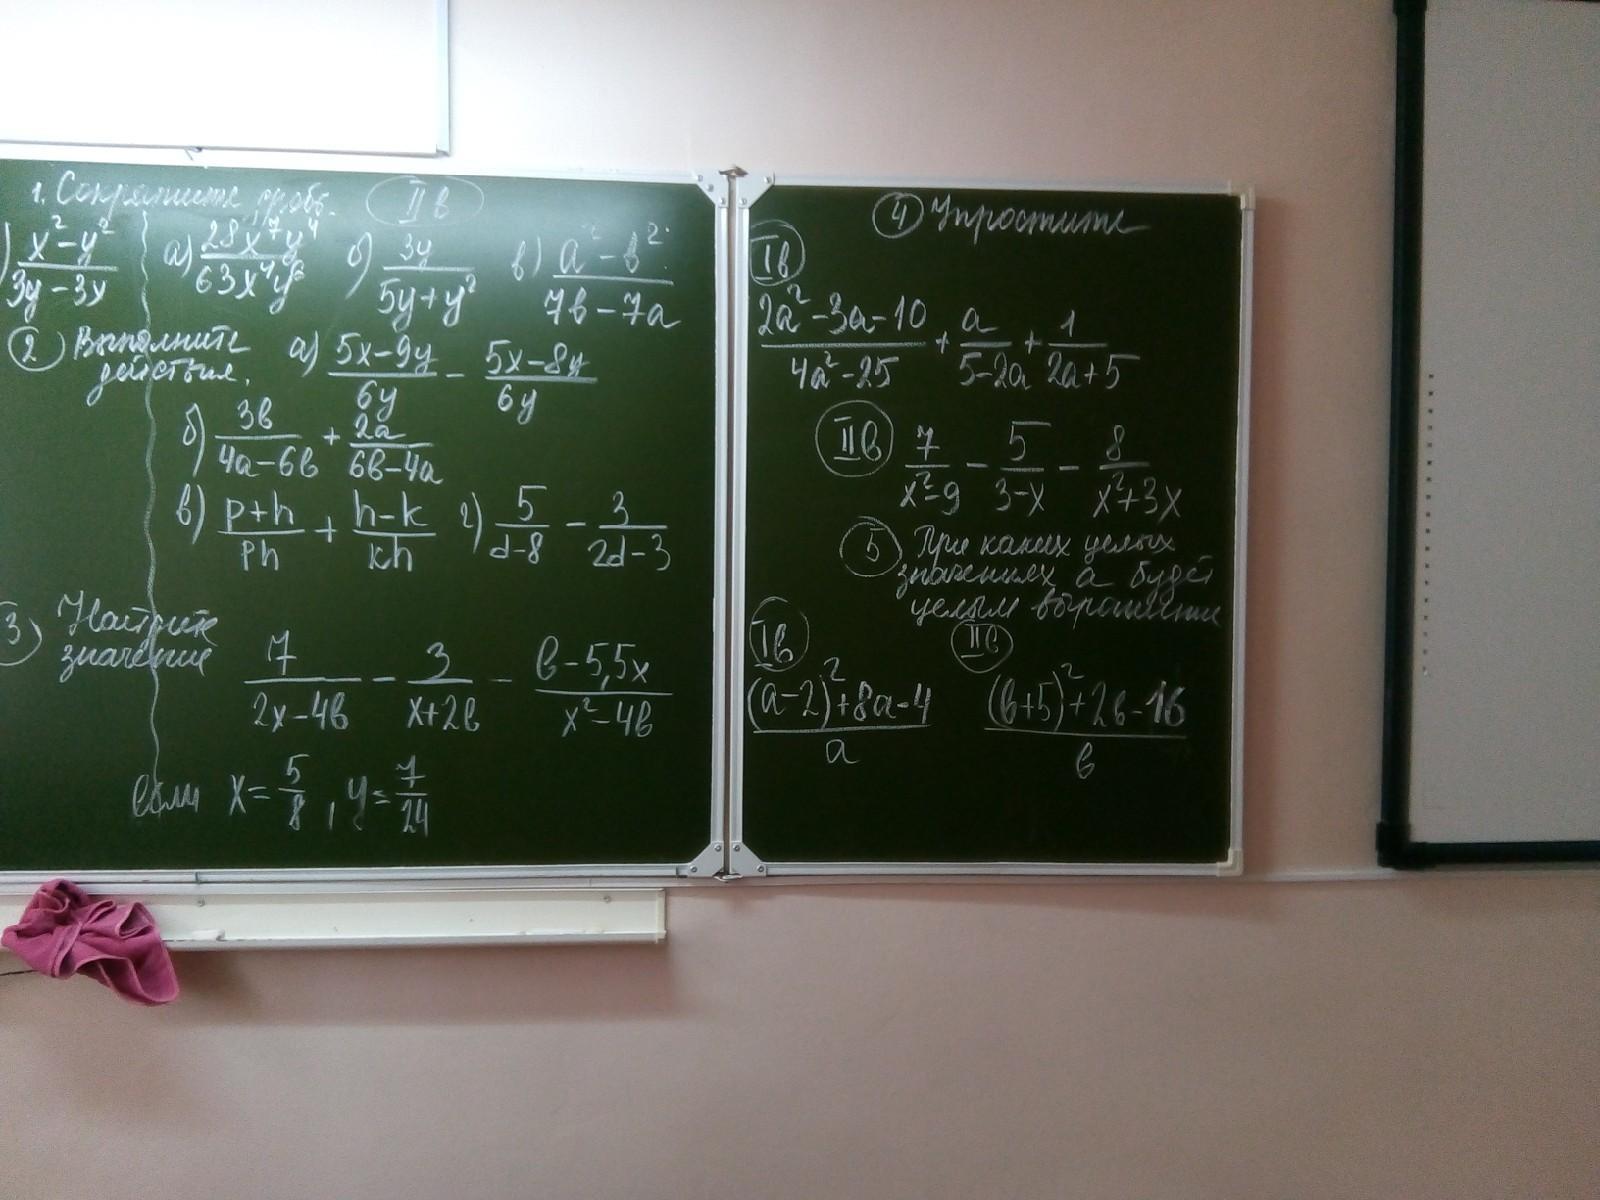 1. Сократите дробь. II в
) x² - y² / 3y - 3x а) 28x⁷y⁴ / 63x⁴y⁶ б) 3y / 5y + y² в) a² - b² / 7b - 7a
2) Выполните действия. а) 5x - 9y / 6y - 5x - 8y / 6y
б) 3b / 4a - 6b + 2a / 6b - 4a
в) p + h / ph + h - k / kh г) 5 / d - 8 - 3 / 2d - 3
3) Найдите значение 7 / 2x - 4b - 3 / x + 2b - b - 5,5x / x² - 4b
если x = 5/8, y = 7/24
4 Упростите
I в
2a² - 3a - 10 / 4a² - 25 + a / 5 - 2a + 1 / 2a + 5
II в 7 / x² - 9 - 5 / 3 - x - 8 / x² + 3x
5) При каких целых
значениях a будет
целым выражение
I в II в
(a - 2)² + 8a - 4 / a (b + 5)² + 2b - 16 / b